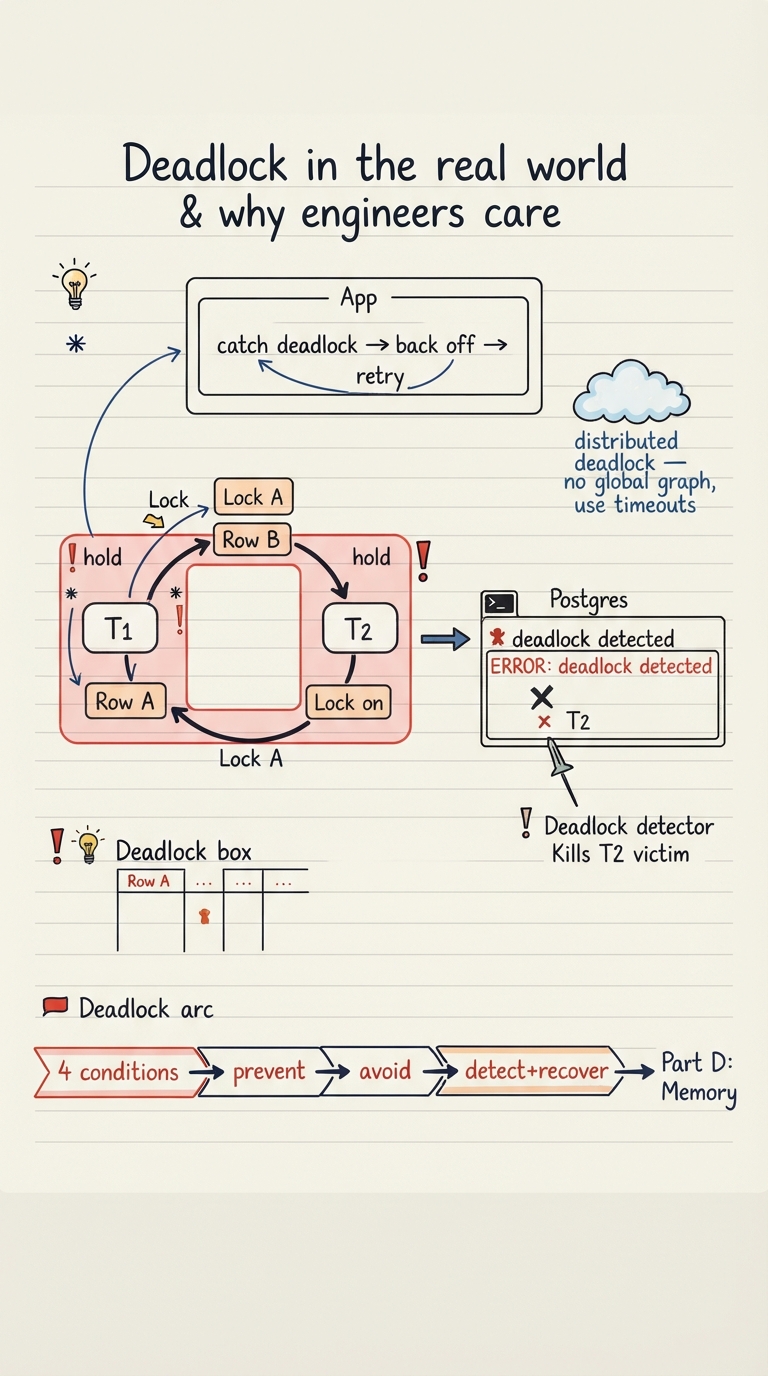 Deadlock in the real world
& why engineers care
App
catch deadlock → back off →
retry
distributed
deadlock —
no global graph,
use timeouts
Lock
Lock A
Row B
! hold
hold
!
*
* !
T1
T2
Row A
Lock on
Lock A
>_
Postgres
deadlock detected
ERROR: deadlock detected
× T2
! Deadlock detector
Kills T2 victim
! Deadlock box
Row A ... ... ...
Deadlock arc
4 conditions → prevent → avoid → detect+recover → Part D:
Memory